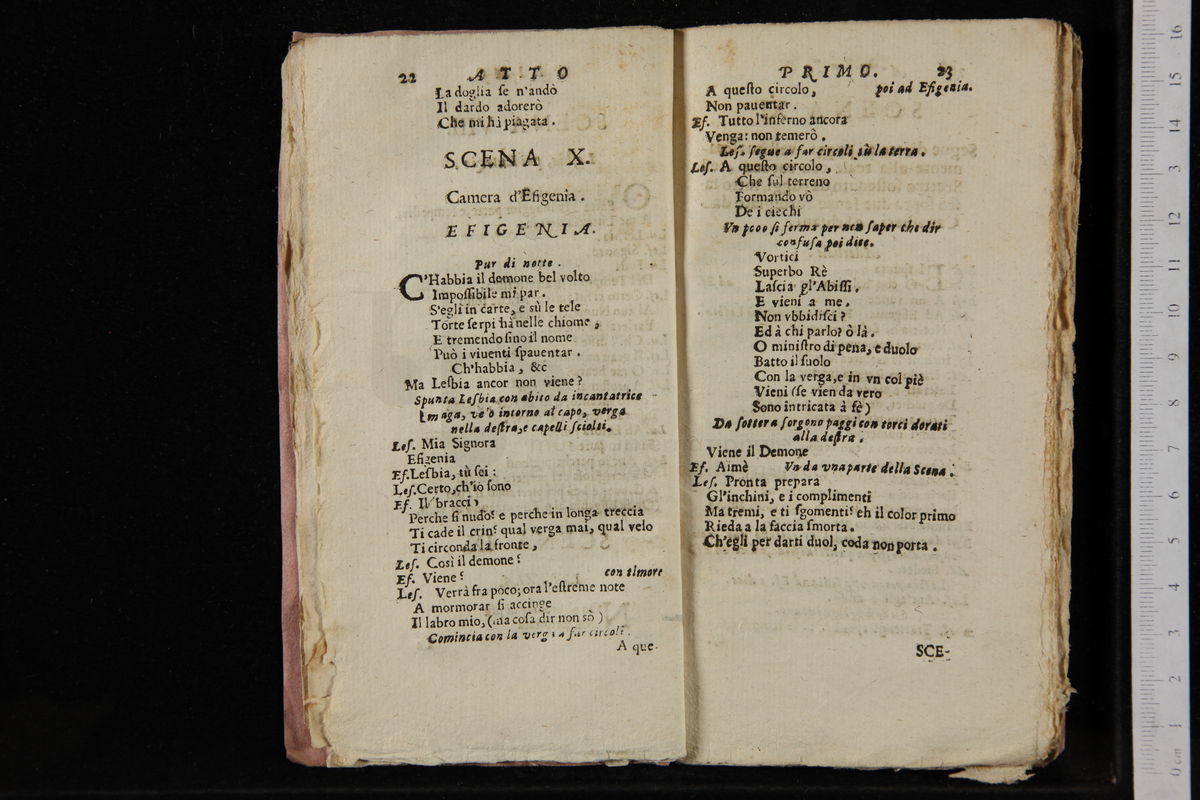 22 ATTO
La doglia ſe n'andò
Il dardo adorerò
Che mi hà piagata.
SCENA X.
Camera d'Efigenia.
EFIGENIA.
Pur di notte.
C'Habbia il demone bel volto
Impoſſibile mi par.
S'egli in carte, e sù le tele
Torte ſerpi hà nelle chiome,
E tremendo ſino il nome
Può i viuenti ſpauentar.
Ch'habbia, &c
Ma Lesbia ancor non viene?
Spunta Lesbia con abito da incantatrice
maga, velo intorno al capo, verga
nella deſtra, e capelli ſciolti.
Leſ. Mia Signora
Efigenia
Ef. Lesbia, tù ſei:
Leſ. Certo, ch'io ſono
Ef. Il bracci,
Perche ſi nudo? e perche in longa treccia
Ti cade il crin? qual verga mai, qual velo
Ti circonda la fronte,
Leſ. Così il demone?
Ef. Viene? con timore
Leſ. Verrà fra poco; ora l'eſtreme note
A mormorar ſi accinge
Il labro mio, (ma coſa dir non sò)
Comincia con la verga a far circoli.
A que-
PRIMO. 23
A queſto circolo, poi ad Efigenia.
Non pauentar.
Ef. Tutto l'inferno ancora
Venga: non temerò.
Leſ. ſegue a far circoli sù la terra.
Leſ. A queſto circolo,
Che ſul terreno
Formando vò
De i ciechi
Vn poco ſi ferma per non ſaper che dir
confuſa poi dice.
Vortici
Superbo Rè
Laſcia gl'Abiſſi,
E vieni a me,
Non vbbidiſci?
Ed à chi parlo? ò là.
O miniſtro di pena, e duolo
Batto il ſuolo
Con la verga, e in vn col piè
Vieni (ſe vien da vero
Sono intricata à fè)
Da ſottera ſorgono paggi con torci dorati
alla deſtra.
Viene il Demone
Ef. Aimè Và da vna parte della Scena.
Leſ. Pronta prepara
Gl'inchini, e i complimenti
Ma tremi, e ti ſgomenti? eh il color primo
Rieda a la faccia ſmorta.
Ch'egli per darti duol, coda non porta.
SCE-